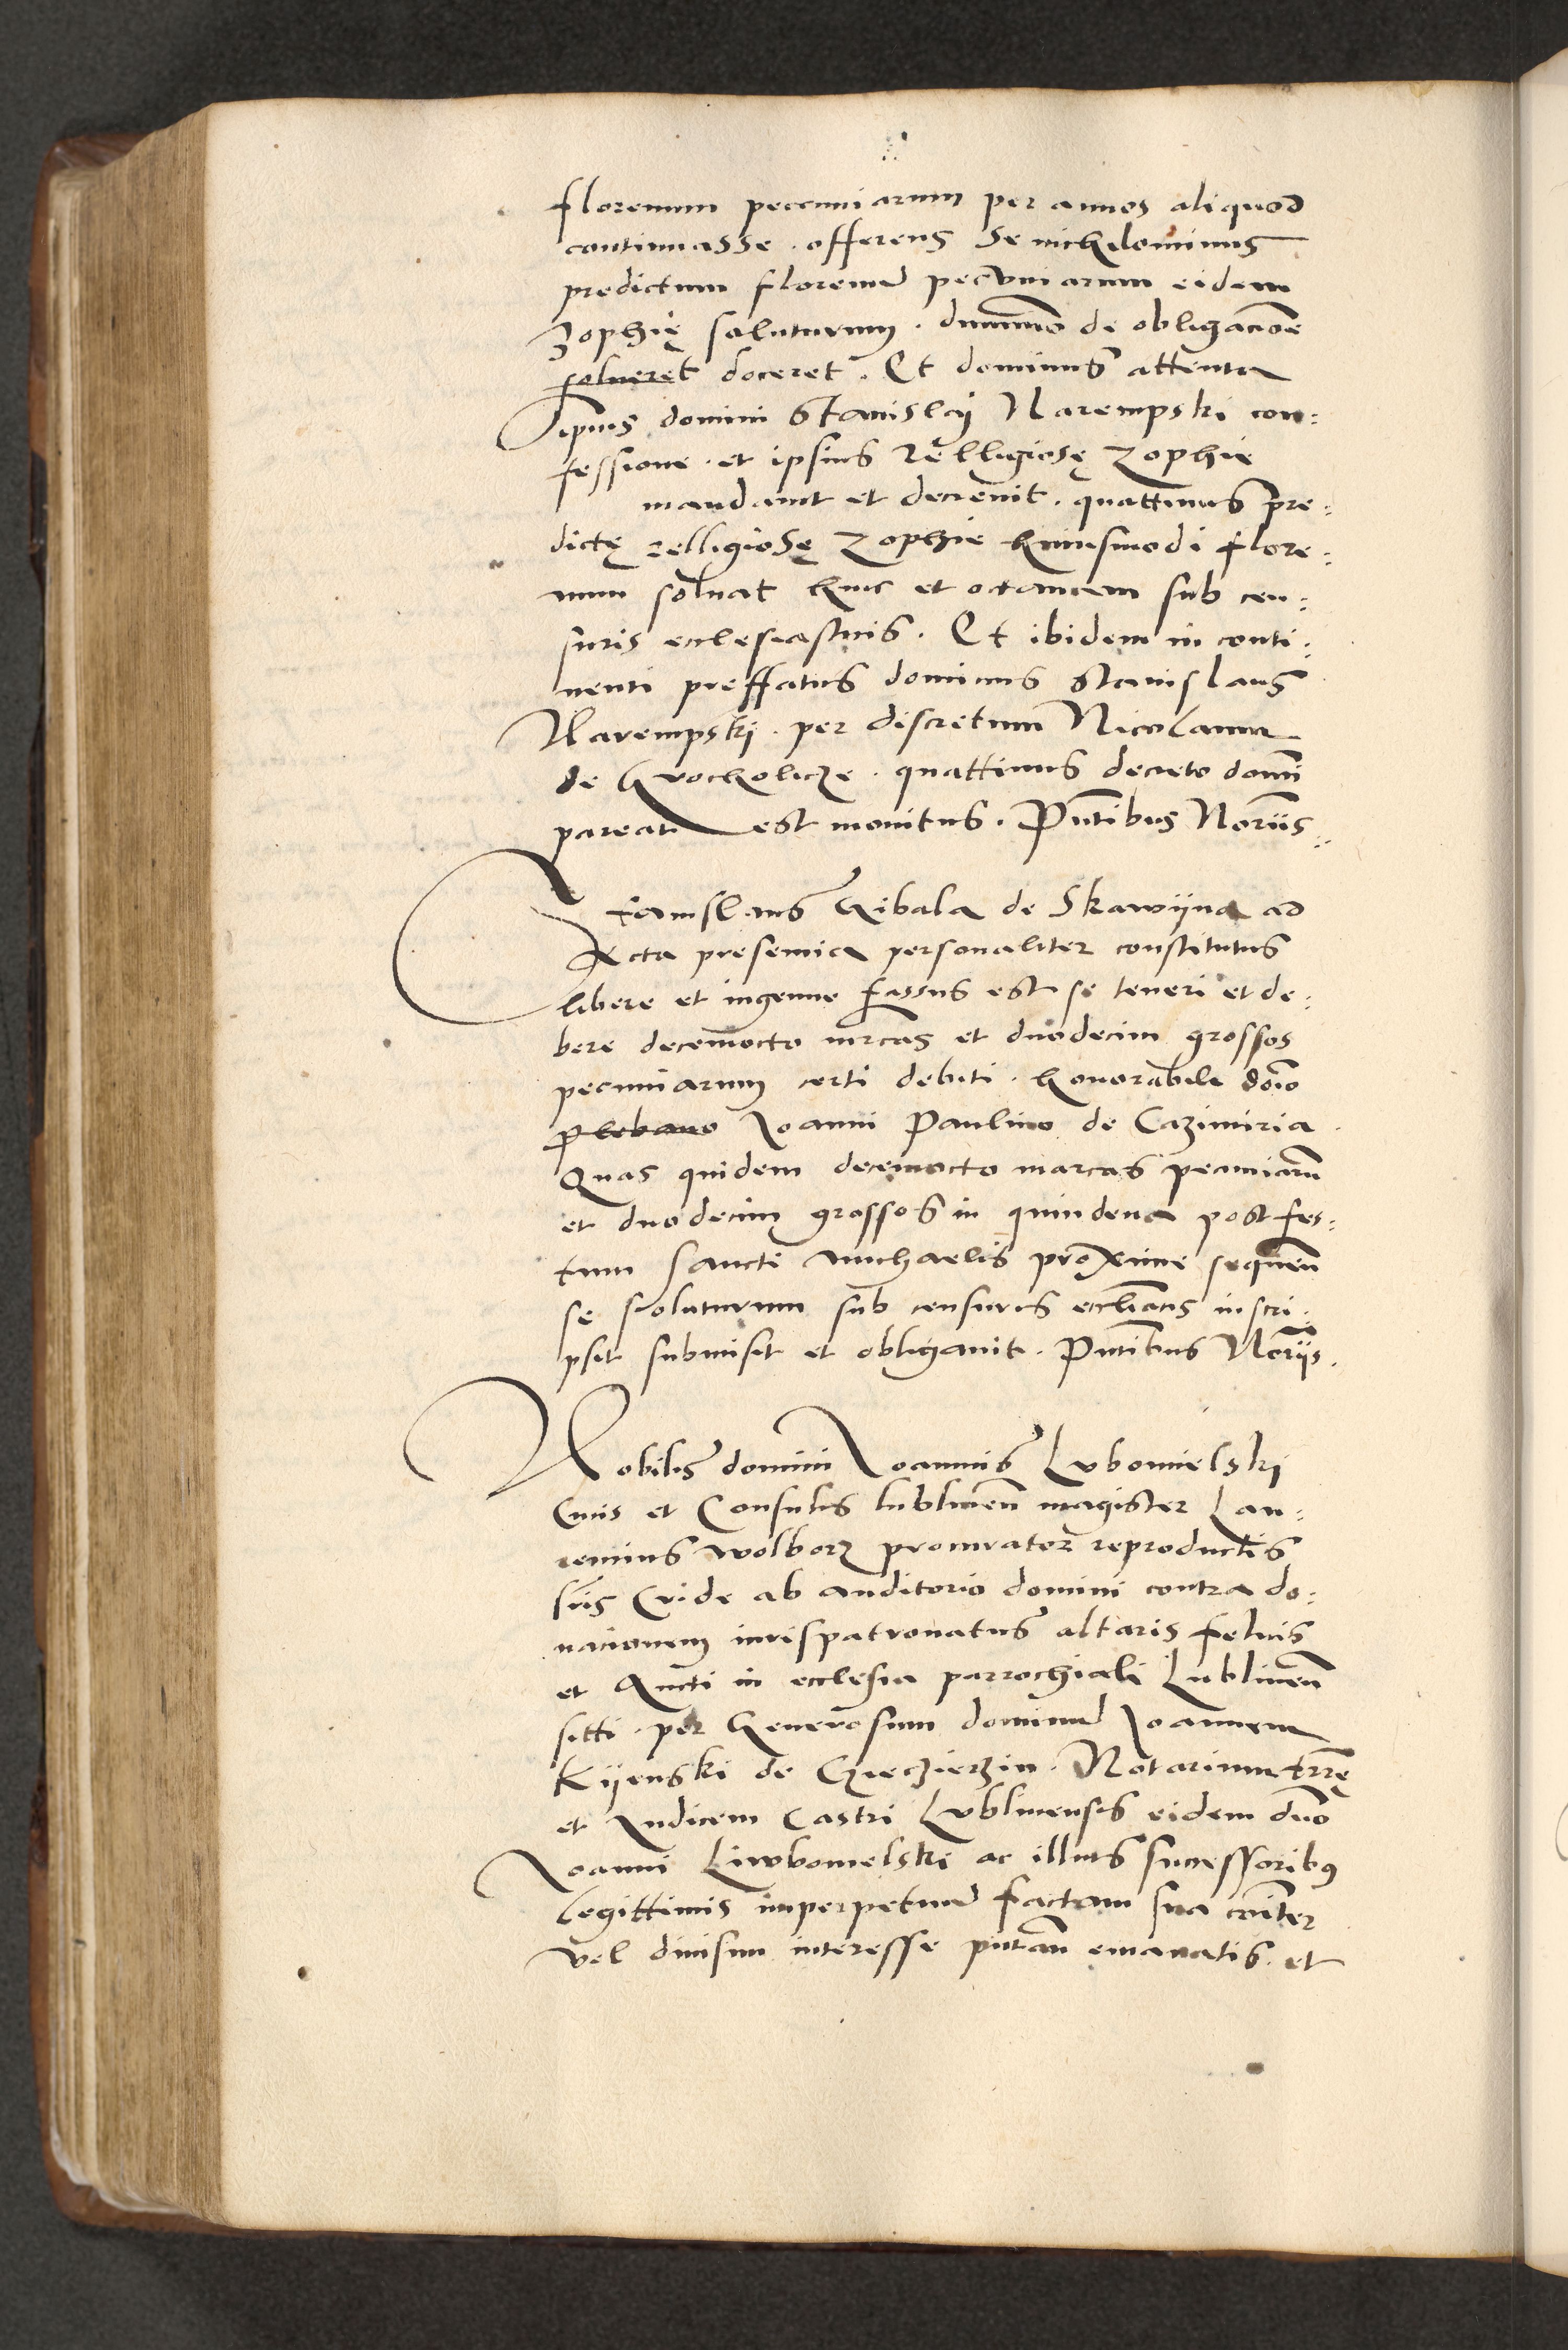 florenum pecuniarum per annos aliquod
continuasse . offerens se nichilominus
predictum florenũ pecuniarum eidem
Zophię soluturum . dummõ de obligacõe
solueret doceret . Et dominus attenta
ipius domini Stanislaij Narempski con:
fessione . et ipsius relligiosę Zophie
mandauit et decreuit . quattinus pre:
dictę relligiosę Zophie huiusmodi flore:
num soluat hinc et octauam sub cen:
suris ecclesiasticis . Et ibidem in conti:
nenti preffatus dominus Stanislaus
Narempskij . per discretum Nicolaum
de Grocholicze . quattinus decreto domĩ
pareat est monitus . Pñtibus Noriis .
Stanislaus Gibala de Skawijna ad
Acta presencia personaliter constitutus
libere et ingenue fassus est se teneri et de:
bere decemocto mrcas et duodecim grossos
pecuniarum certi debiti . honorabili dõio
plebano Joanni Paulino de Cazimiria .
Quas quidem decemocto marcas pecuniarũ
et duodecim grossos in quindena post fes:
tum sancti michaelis proxime sequeñ
se soluturum sub censuris ecclĩacis inscri:
psit submisit et obligauit . Pñtibus Noriis .
Nobilis domini Joannis Lubomelski
Ciuis et Consulis lublineñ magister Lau:
rencius wolborz procurator reproductis
lr̃is Cride ab auditorio domini contra do:
nacionem iurispatronatus altaris felicis
et Aucti in ecclesia parrochiali Lublineñ
sitti . per Generosum dominũ Joannem
Kijenski de Czieczierzin . Notarium trr̃ę
et Judicem Castri Lublinensis eidem dño
Joanni Liwbomelski ac illius successoribus
legittimis imperpetuũ factam sua cõiter
vel diuisim interesse putañ emanatis . et